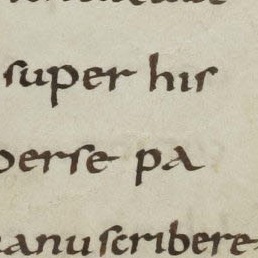 super his
perse pa
manu scribere